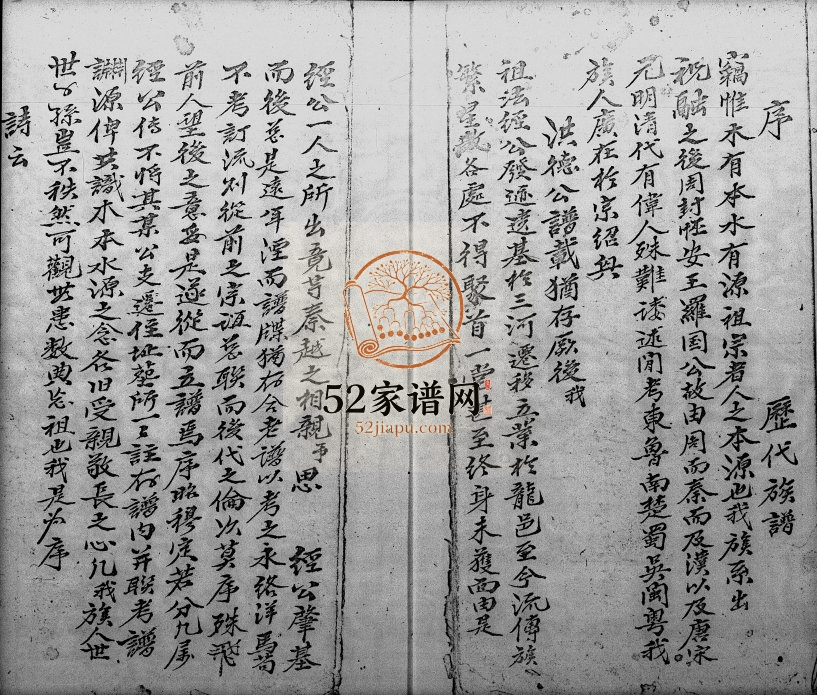 序
歷代族譜
竊惟木有本水有源祖宗者人之本源也我族系出
祝融之後周封妘安王羅国公故由周而秦而及漢以及唐宋
元明清代有偉人殊難謏述閒考東魯南楚蜀吳閩粤我
族人廣在於宗紹興
洪德公譜載猶存厥後我
祖法經公發遞遺基於三河遷移立業於龍邑至今流傳族
繁星散各處不得聚首一堂甚至終身未獲面由是
經公一人之所出竟等秦越之相親乎思 經公肇基
而後忽是遠年湮而譜牒猶存合老譜以考之永絡洋馬苟
不考訂流別從前之宗誼忽聯而後代之倫次莫序殊飛
前人望後之意妥是遂從而立譜焉序昭穆定若分凡屬
經公传不将其某公支遷住址塋所一一註存譜内并联考譜
淵源俾共識木本水源之念各旧受親敬長之心凡我族人世
世子孫豈不秩然可觀世患数典忘祖也我是為序
詩云
52家谱网
52jiapu.com